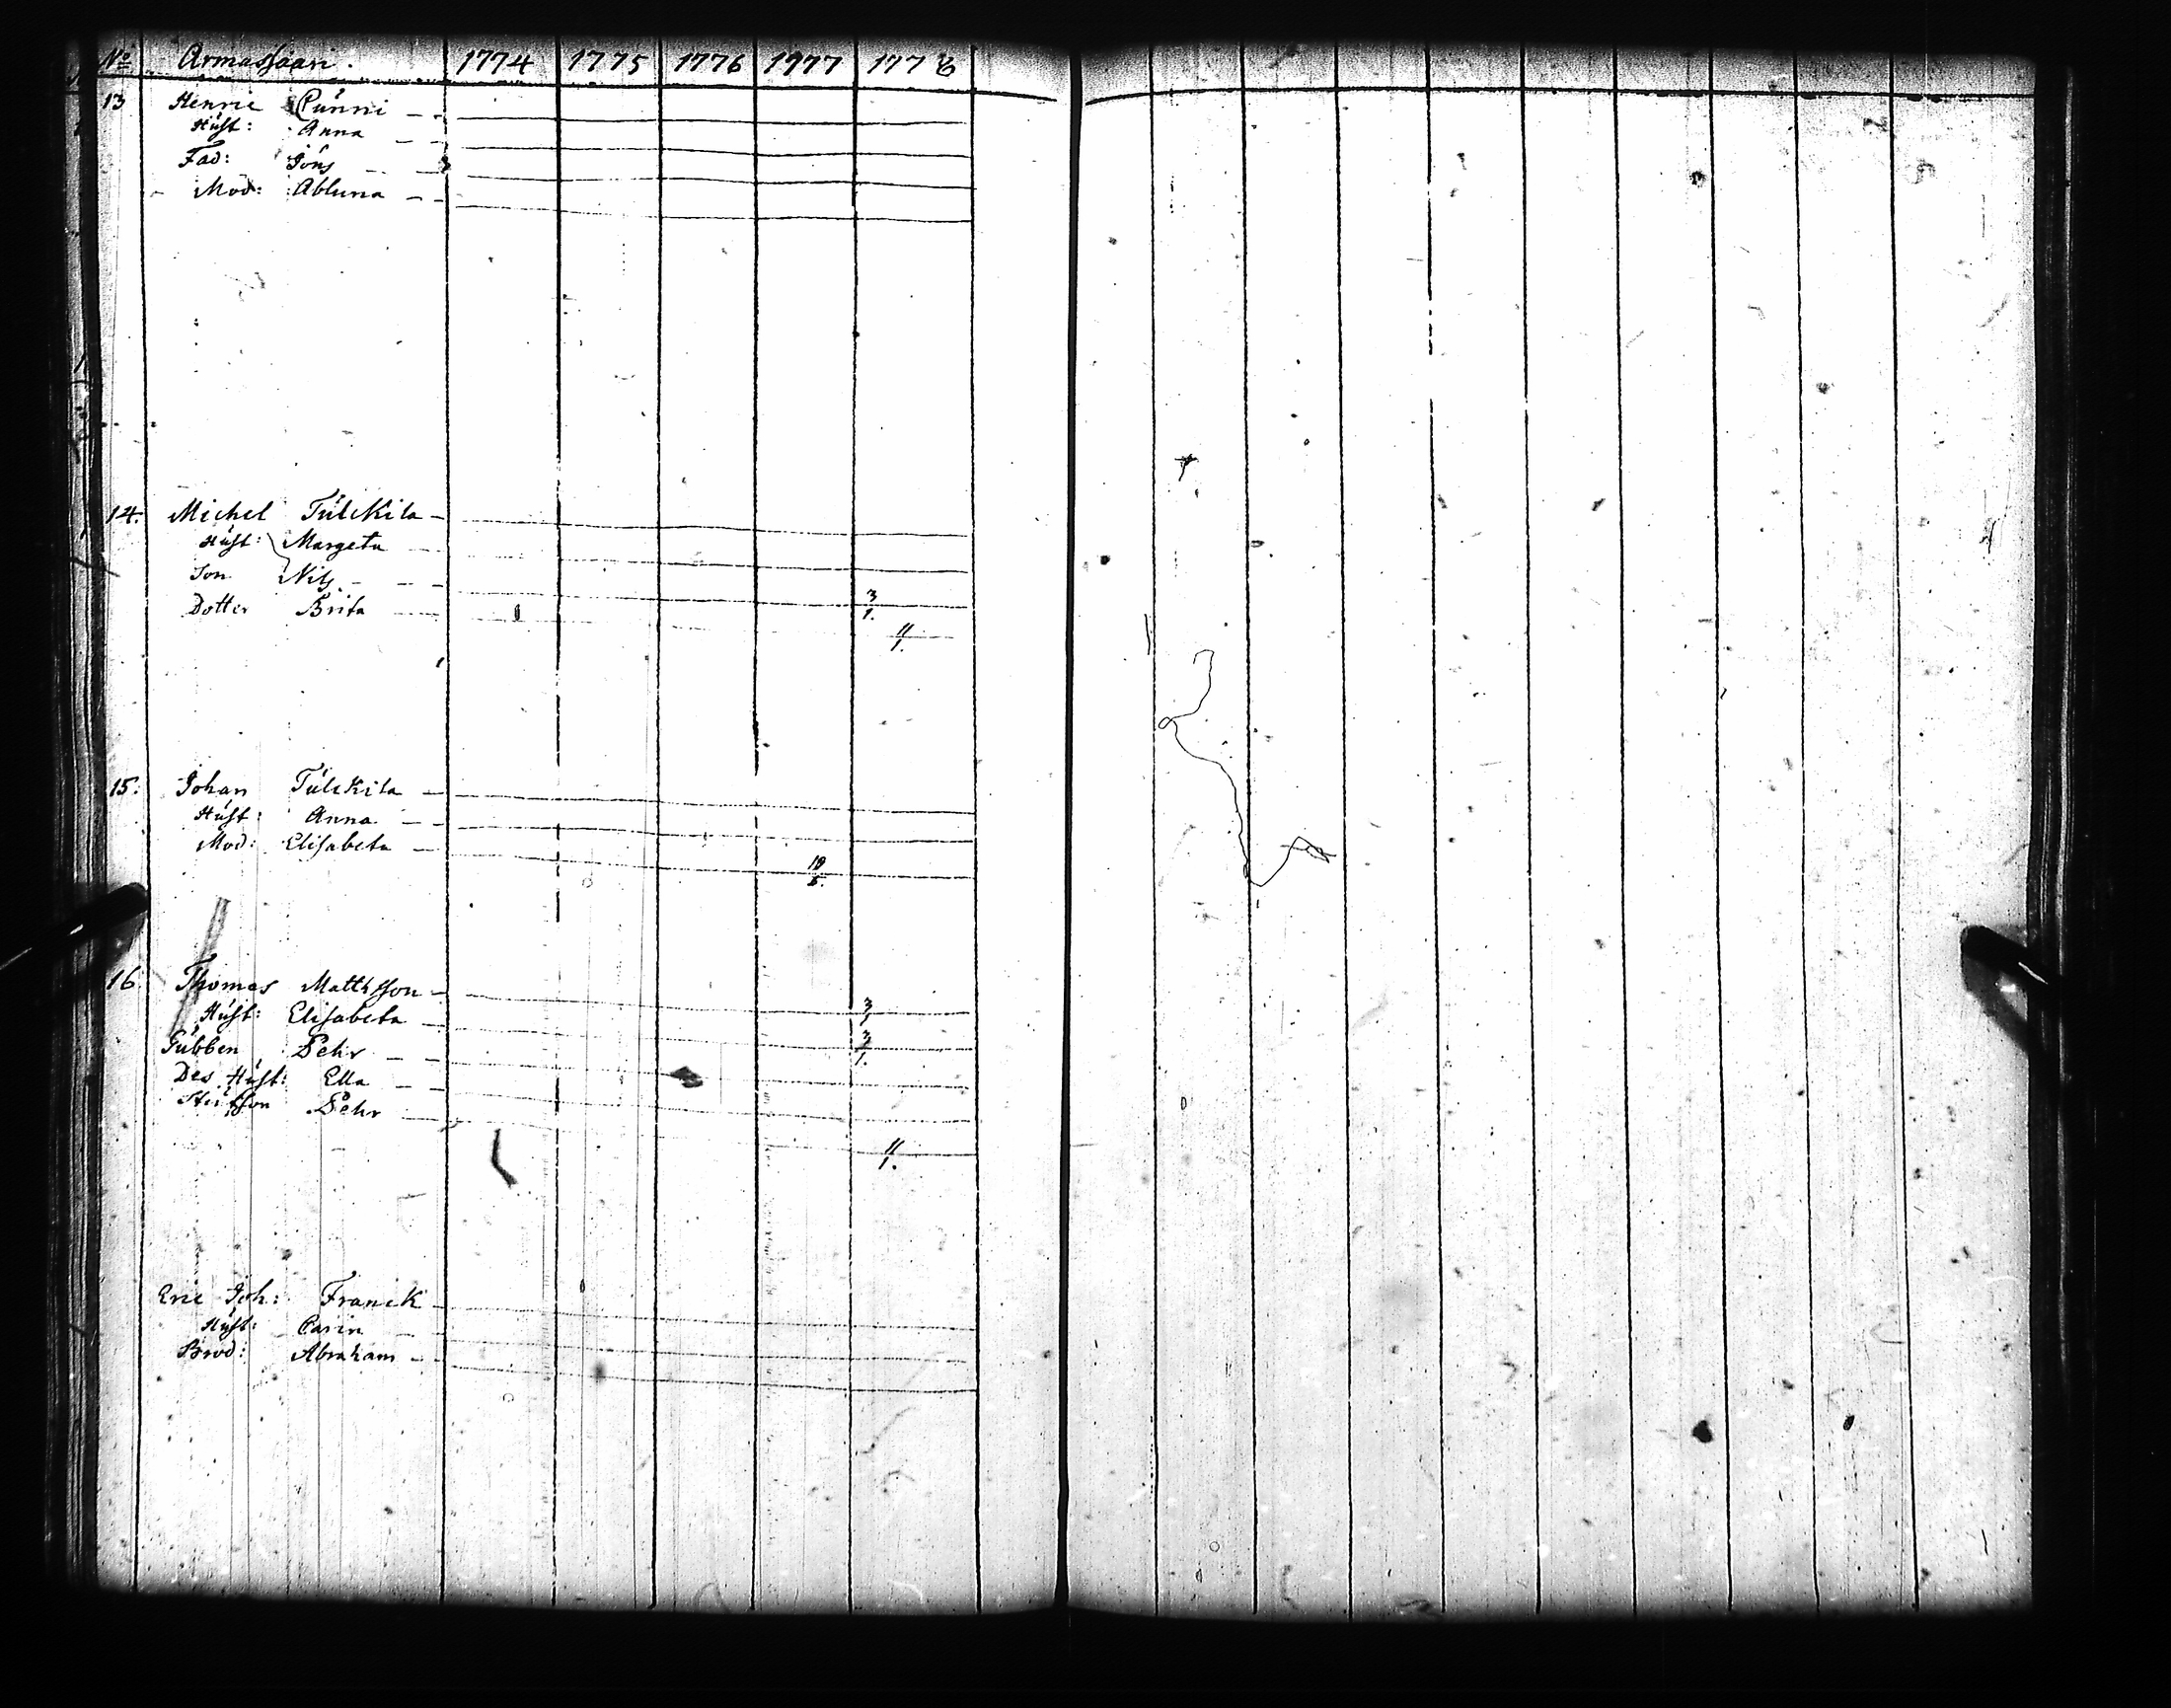 No Armassaari. 1774 1775 1776 1977 1778
13 Henric Punni
Hust: Anna
Fad: Jöns
Mod: Abluna
14. Michel Tulckila
Hust: Margeta
Son Nils
Dotter Brita 3/1.
11/1.
15. Johan Tulckila
Hust: Anna
Mod: Elisabeta
10/5.
16. Thomas Mattsson
Hust: Elisabeta 3/1
Gubben Pehr 3/1.
Des Hust: Ella
Pehr
11/1.
Eric Joh: Franck
Hust: Carin
Brod: Abraham